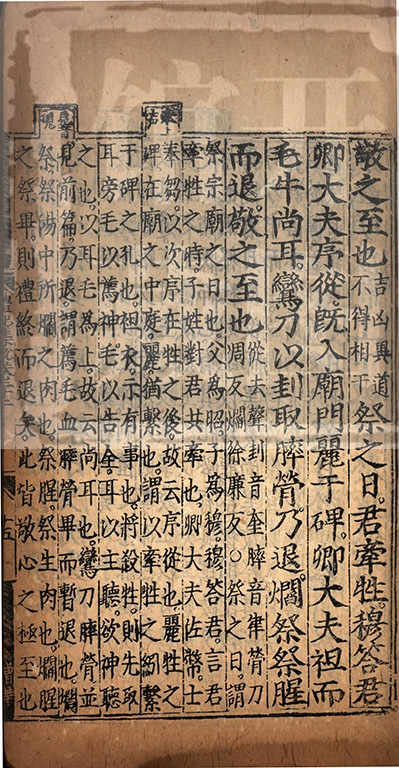 敬之至也吉凶異道不得相干祭之日。君牽牲。穆答君
卿大夫序從。旣入廟門。麗于碑。卿大夫袒而
毛牛尚耳。鸞刀以刲取膟膋。乃退。爓祭祭腥
而退。敬之至也從去聲刲音奎膟音律膋刀凋反爓徐廉反○祭之日。謂
祭宗廟之日也。父爲昭。子爲穆。穆答君。言君
牽牲之時。子姓對君共牽也。卿大夫佐幣。士
奉芻。以次序在牲之後。故云序從也。麗牲之
碑。在廟之中庭。麗猶繫也。謂以牽牲之紖繫
于碑之孔也。袒衣。示有事也。將殺牲。則先取
耳旁毛以薦神。毛以告全。耳以主聽。欲神聽
之也。以耳毛爲上。故云尚耳也。鸞刀膟膋並
見前篇。乃退。謂薦毛血膟膋畢而暫退也。爓
祭。祭湯中所爓之肉也。祭腥。祭生肉也。爓腥
之祭畢。則禮終而退矣。此皆敬心之極至也